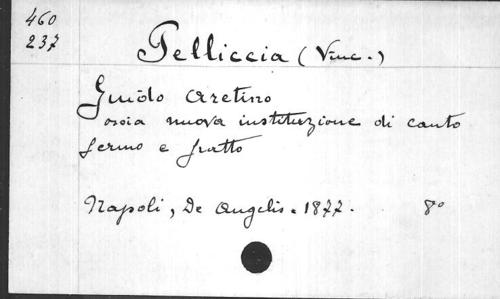 460
237
Pelliccia (Vinc.)
Guido Aretino
ossia nuova instituzione di canto
fermo e fratto
Napoli, De Angelis. 1877. 8º